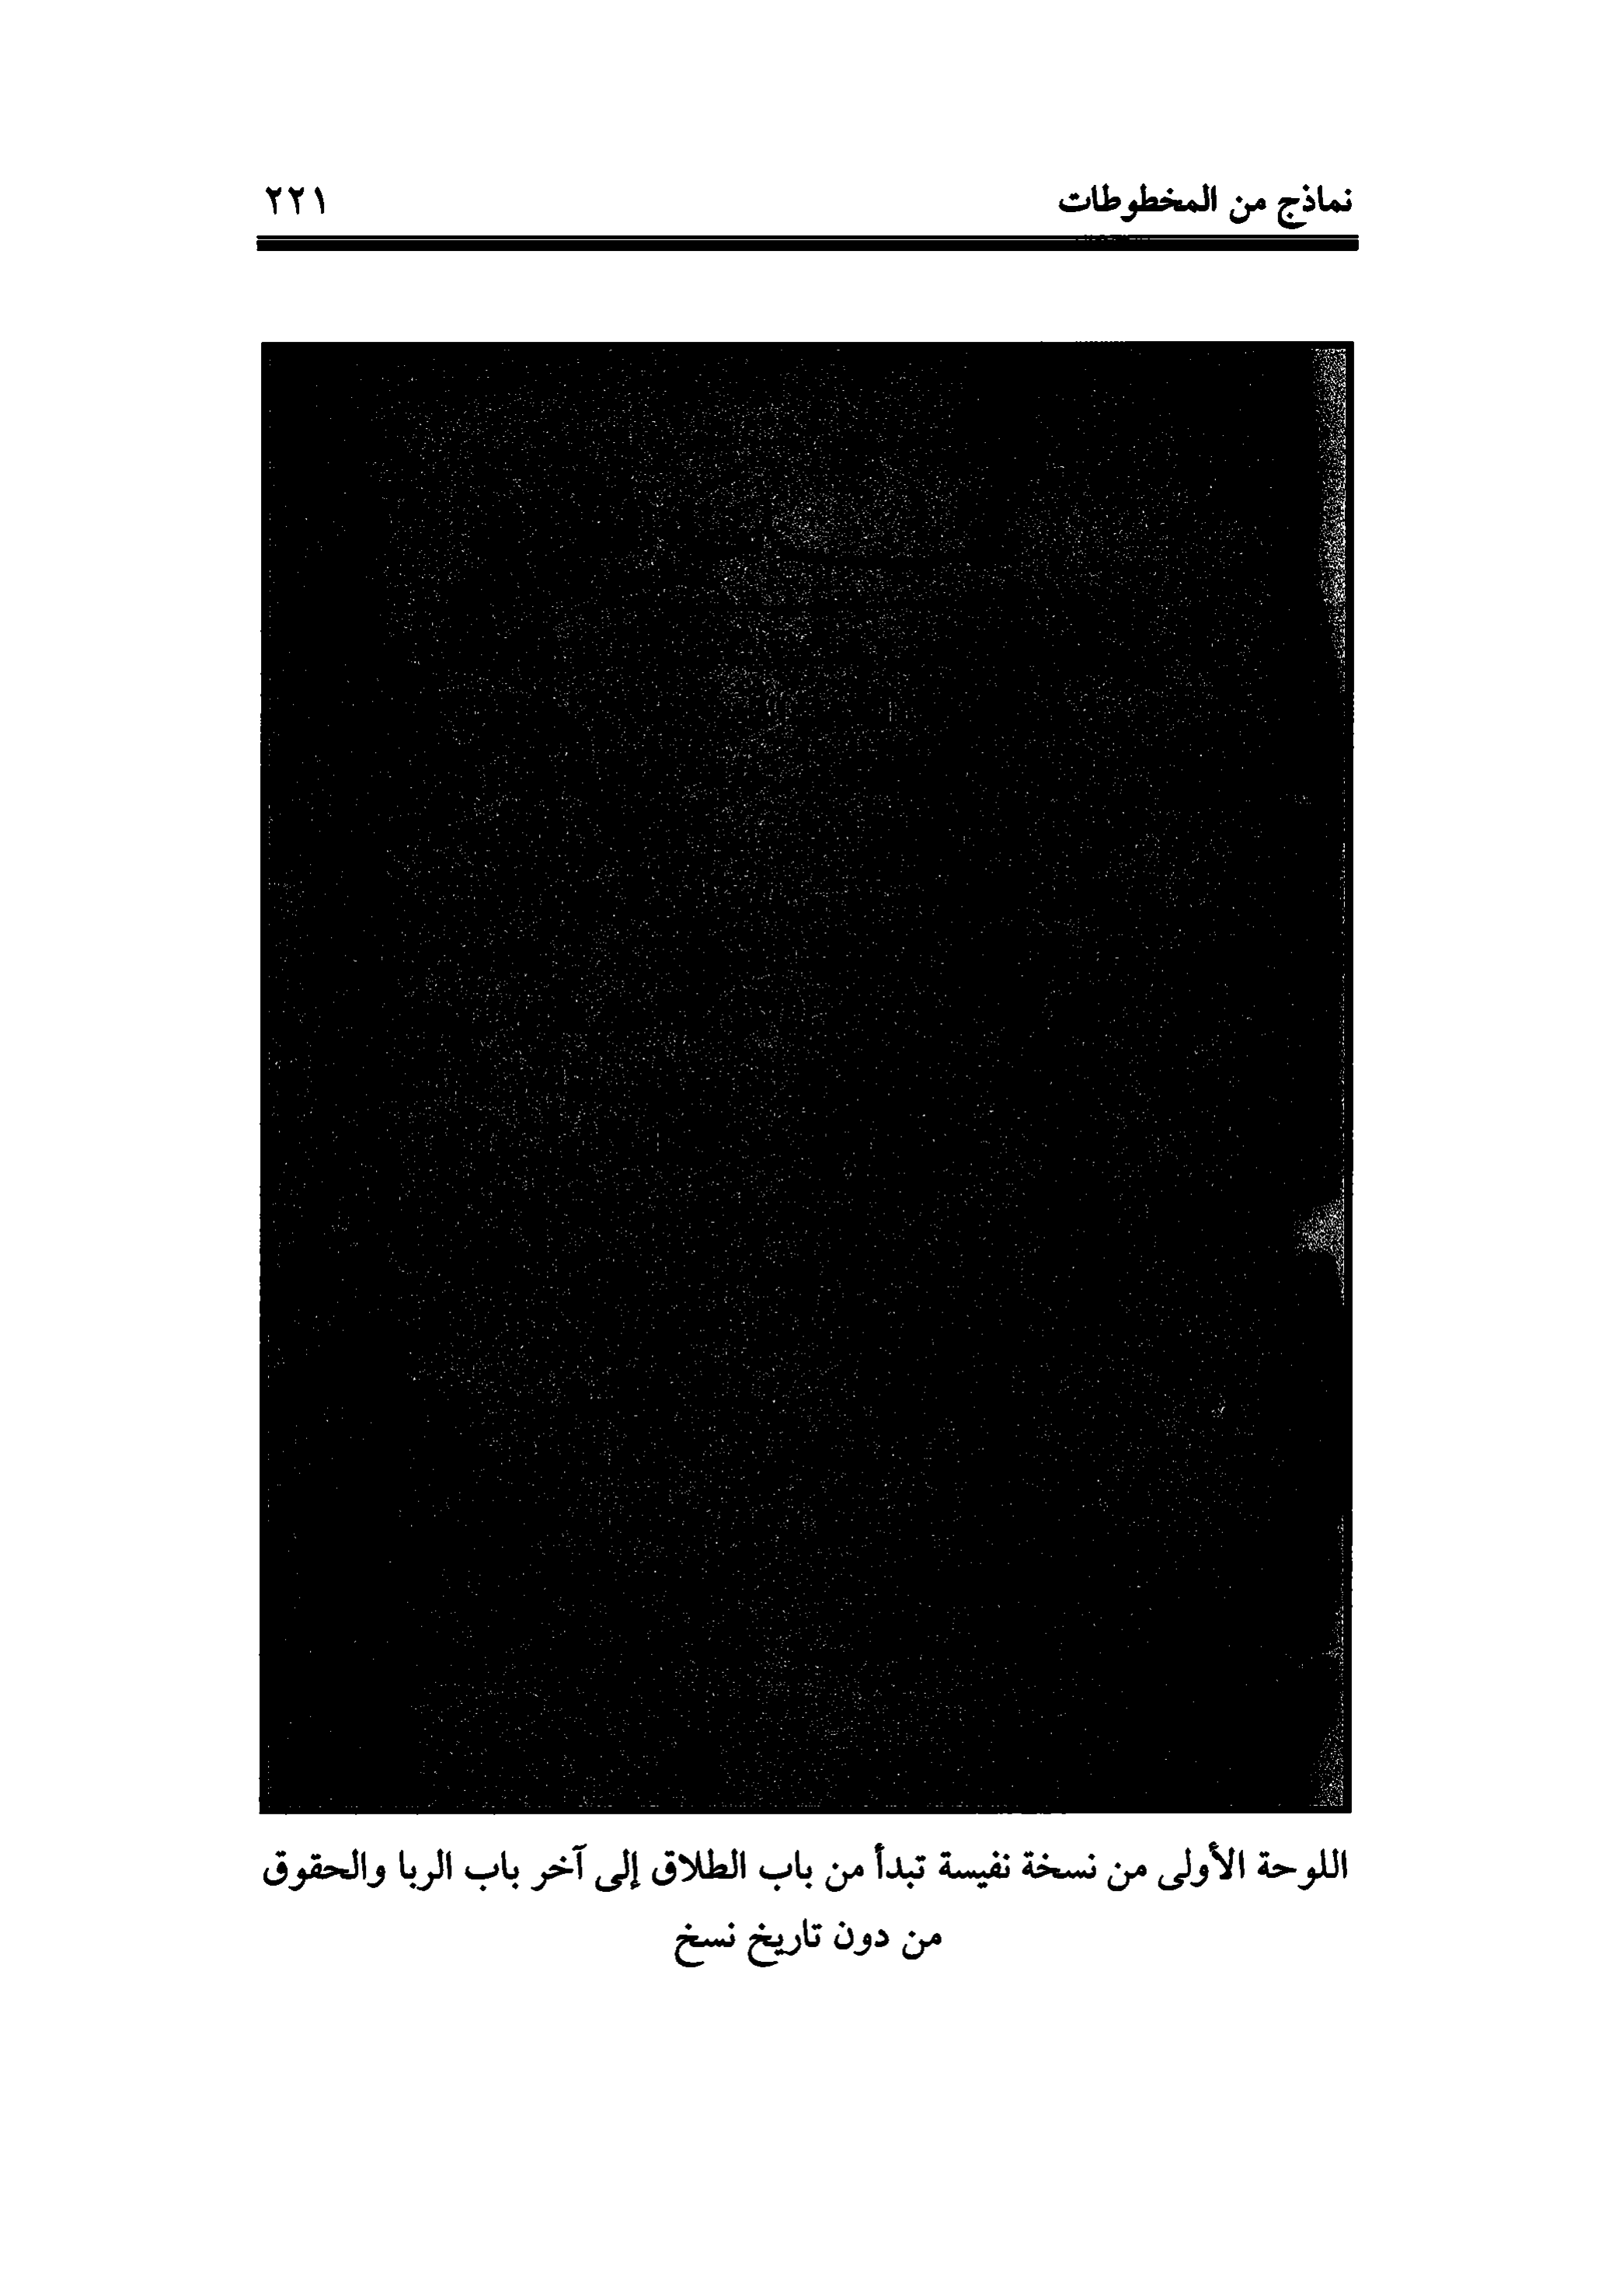 نماذج من المخطوطات ٢٢١
اللوحة الأولى من نسخة نفيسة تبدأ من باب الطلاق إلى آخر باب الربا والحقوق
من دون تاريخ نسخ